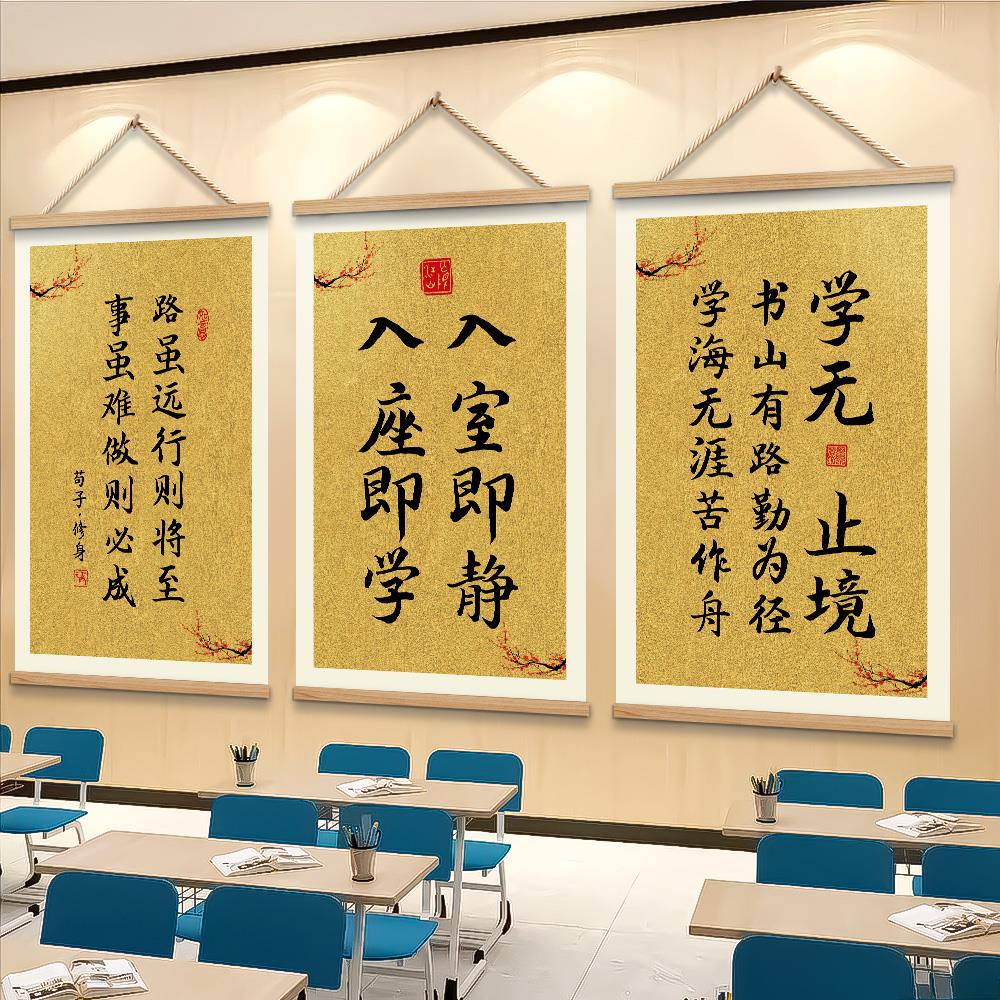 路虽远行则将至
事虽难做则必成
荀子·修身
入室即静
入座即学
学无止境
书山有路勤为径
学海无涯苦作舟